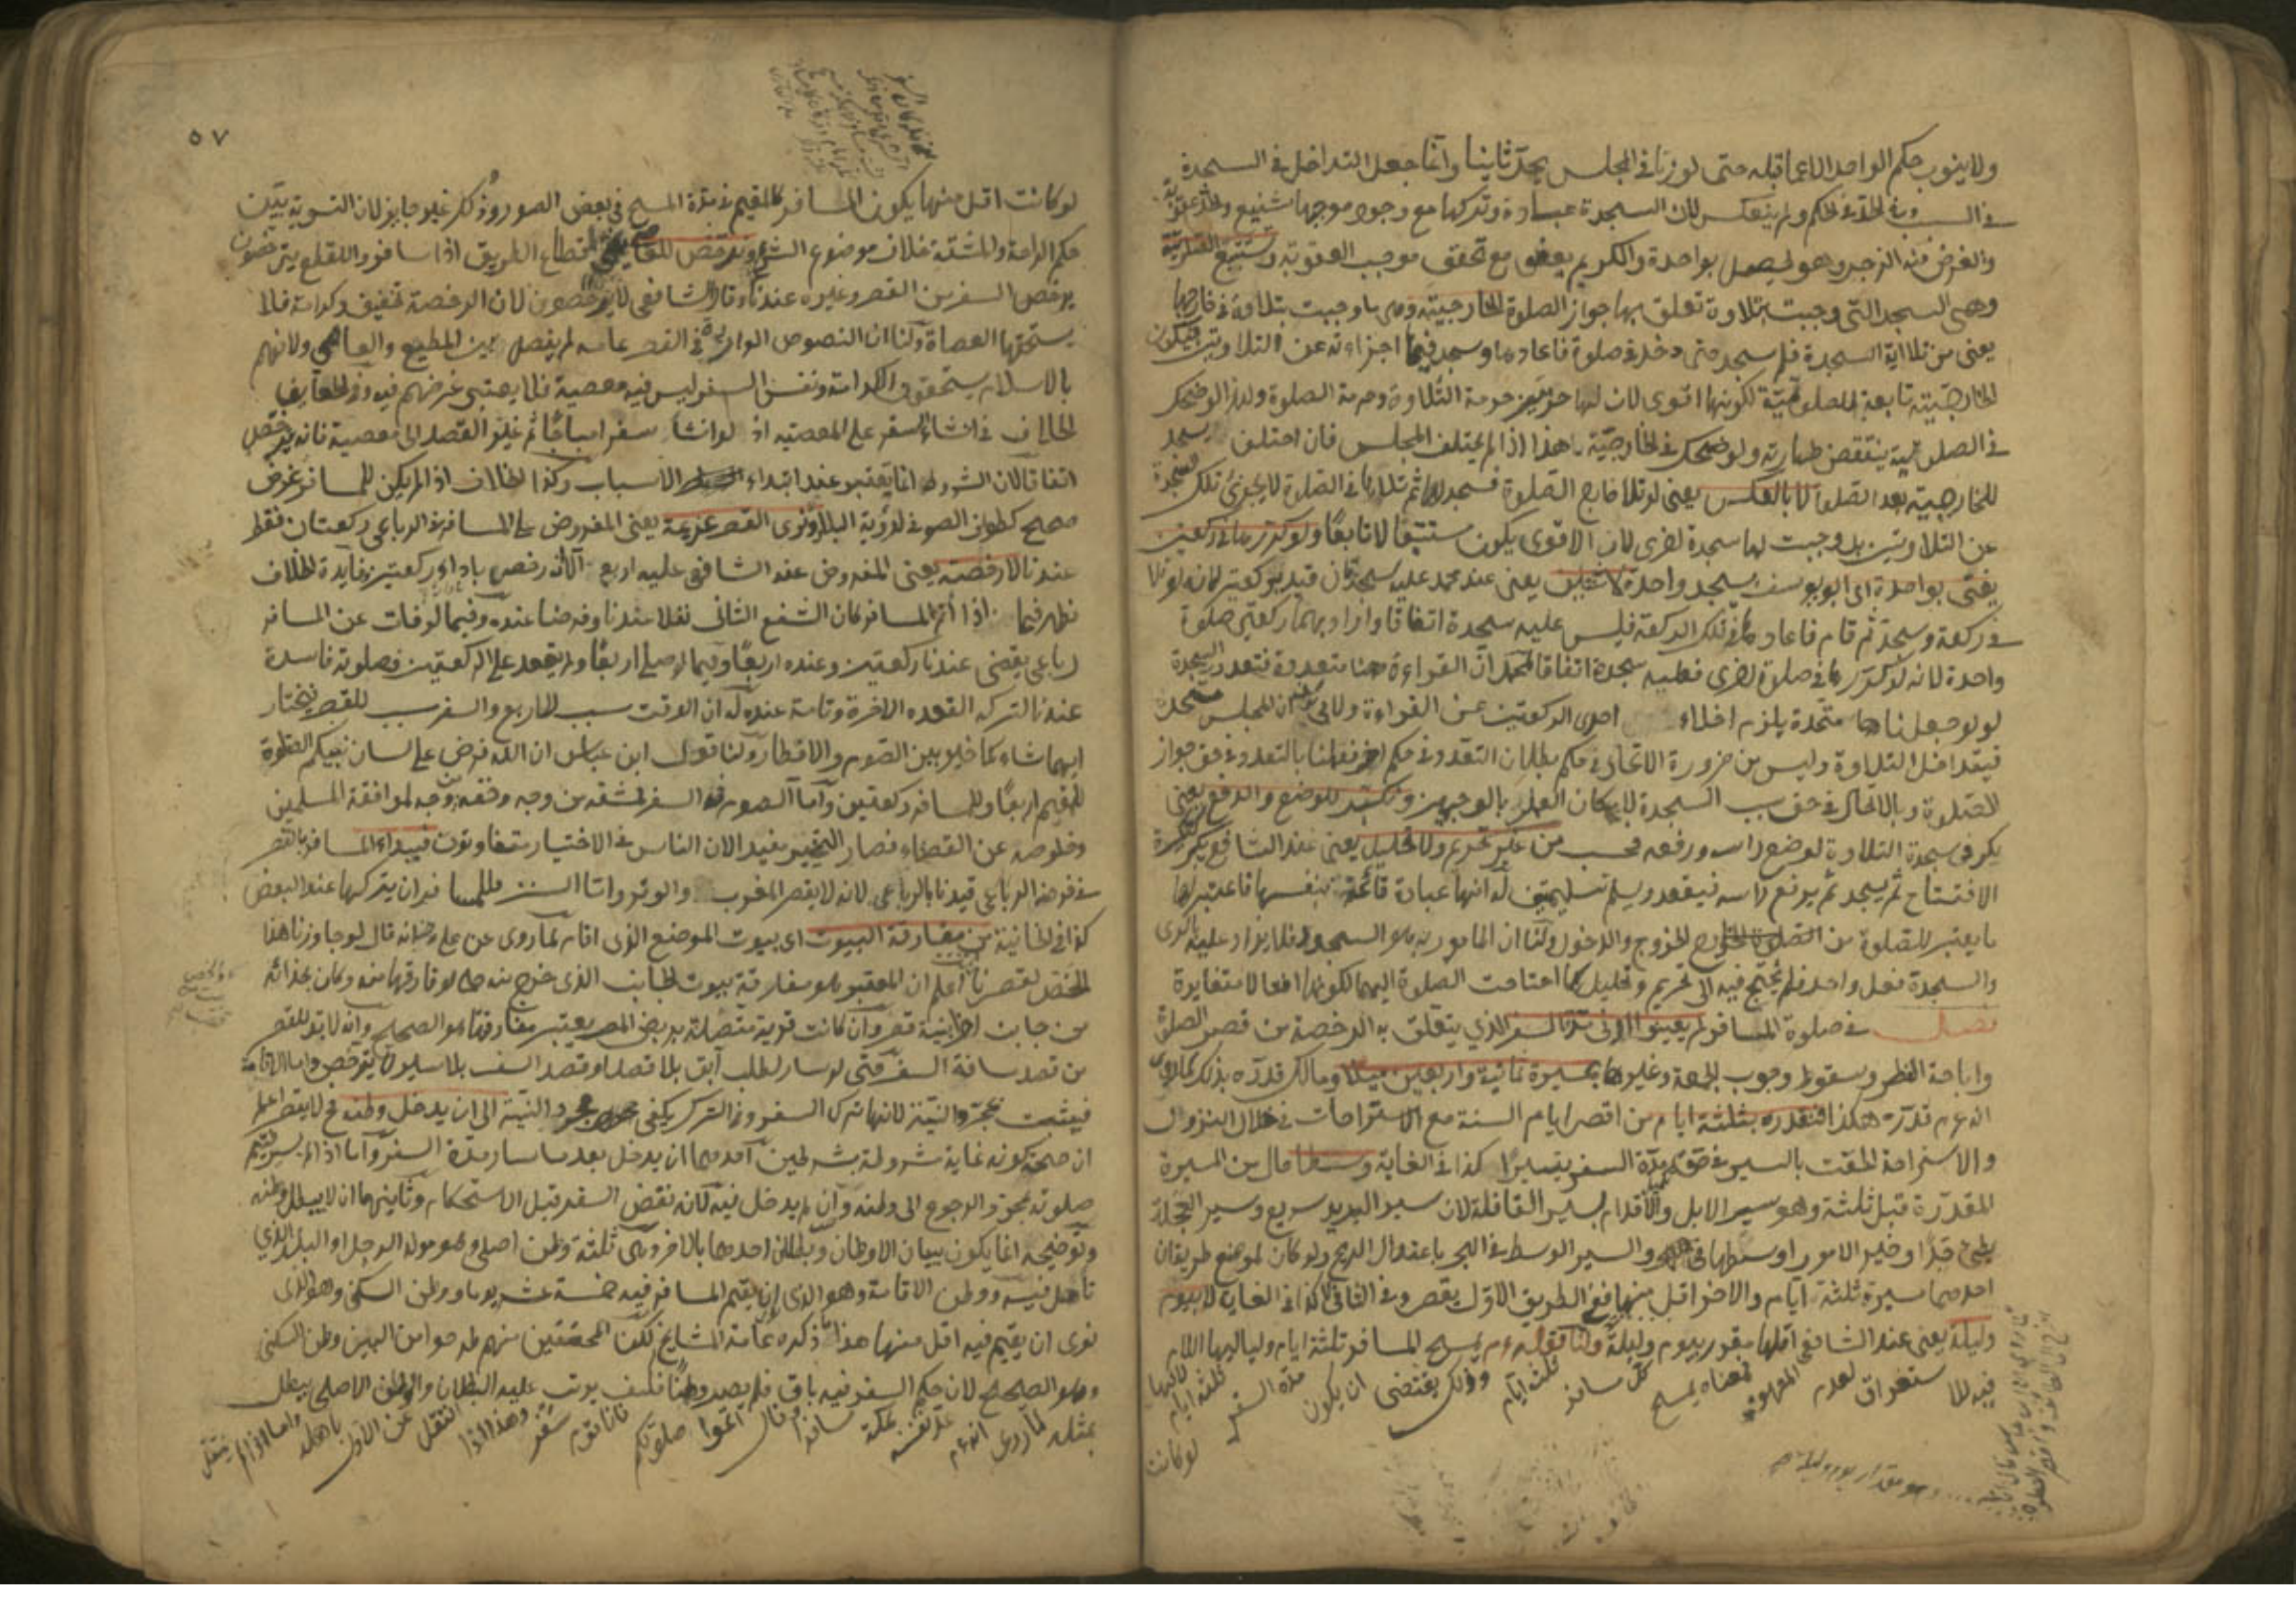 ولا ينوب حكم الواحد الا عما قبله حتى لو زنا في المجلس يحد ثانيا وانما جعل التداخل في السجدة
في السبب وفي الحد في الحكم ولم ينعكس لان السجدة عبادة وتركها مع وجود موجبها شنيع والحد عقوبة
والغرض منه الزجر وهو يحصل بواحدة والكريم يعفو مع تحقق موجب العقوبة وتستتبع الصلوتية
وهي السجدة التي وجبت بتلاوة تعلق بها جواز الصلوة الخارجية وهي ما وجبت بتلاوة في خارجها
يعني من تلا آية السجدة فلم يسجد حتى دخل في صلوة فاعادها وسجد فيها اجزاءته عن التلاوتين فيكون
الخارجية تابعة للصلوتية لكونها اقوى لان لها حرمتين حرمة التلاوة وحرمة الصلوة ولهذا لو ضحك
في الصلوتية ينتقض طهارته ولو ضحك في الخارجية لا هذا اذا لم يختلف المجلس فان اختلف يسجد
للخارجية بعد الصلوة لا بالعكس يعني لو تلا خارج الصلوة فسجد لها ثم تلاها في الصلوة لا يجزئ تلك السجدة
عن التلاوتين بل وجبت لها سجدة اخرى لان الاقوى يكون مستتبعا لا تابعا ولو كررها في ركعتين
يفتى بواحدة اي ابو يوسف يسجد واحدة لا ثنتين يعني عند محمد عليه سجدتان قيد بركعتين لانه لو تلا
في ركعة وسجد ثم قام فاعادها في تلك الركعة فليس عليه سجدة اتفاقا واراد بهما ركعتي صلوة
واحدة لانه لو كررها في صلوة اخرى فعليه سجدة اتفاقا لمحمد ان القراءة هنا متعددة فتتعدد السجدة
لو لو جعلناها متحدة يلزم اخلاء احدى الركعتين عن القراءة ولابي يوسف ان المجلس متحد
فيتداخل التلاوة وليس من ضرورة الاتحاد في حكم بطلان التعدد في حكم اخر فقلنا بالتعدد في حق جواز
الصلوة وبالاتحاد في حق سبب السجدة لامكان العمل بالوجهين ونكبر للوضع والرفع يعني
يكبر في سجدة التلاوة لوضع راسه ورفعه فحسب من غير تحريم ولا تحليل يعني عند الشافعي يكبر تكبيرة
الافتتاح ثم يسجد ثم يرفع راسه فيقعد ويسلم تسليمتين له انها عبادة قائمة بنفسها فاعتبر لها
ما يعتبر للصلوة من الخروج والدخول ولنا ان المأمور به هو السجود فلا يزاد عليه بالرأي
والسجدة فعل واحد فلم يحتج فيه الى تحريم وتحليل كما احتاجت الصلوة اليهما لكونها افعالا متغايرة
فصل في صلوة المسافر لم يعينوا ادنى مدة السفر الذي يتعلق به الرخصة من قصر الصلوة
واباحة الفطر وسقوط وجوب الجمعة وغيرها بمسيرة ثمانية واربعين ميلا ومالك قدره بذلك لما روي
انه عم قدره هكذا فنقدره بثلثة ايام من اقصر ايام السنة مع الاستراحات في خلال النزول
والاستراحة الحقت بالسير في حق مدة السفر تيسيرا كذا في الغاية وسطا حال من المسيرة
المقدرة قبل ثلثة وهو سير الابل والاقدام بسير القافلة لان سير البريد سريع وسير العجلة
بطئ جدا وخير الامور اوسطها والسير الوسط في البحر باعتدال الريح ولو كان لموضع طريقان
احدهما مسيرة ثلثة ايام والاخر اقل منها ففي الطريق الاول يقصر وفي الثاني لا كذا في الغاية لا بيوم
وليلة يعني عند الشافعي اقلها مقدر بيوم وليلة ولنا قوله عم يمسح المسافر ثلثة ايام ولياليها اللام
فيه للاستغراق لعدم المعهود فمعناه يمسح كل مسافر ثلثة ايام وذلك يقتضي ان يكون مدة السفر ثلثة ايام لانها
لو كانت
وهو مقدار يوم وليلة
٥٧
لو كانت اقل منها يكون المسافر كالمقيم في مدة المسح في بعض الصور وذلك غير جايز لان التسوية بين
حكم الراحة والمشقة خلاف موضوع الشرع ونرخص للعاصي كقطاع الطريق اذا سافروا للقطع يترخصون
برخص السفر من القصر وغيره عندنا وقال الشافعي لا يترخصون لان الرخصة تخفيف وكرامة فلا
يستحقها العصاة ولنا ان النصوص الواردة في القصر عامة لم يفصل بين المطيع والعاصي ولانهم
بالاسلام يستحقون الكرامة ونفس السفر ليس فيه معصية فلا يعتبر غرضهم فيه وفي الحقايق
الخلاف في انشاء السفر على المعصية اذ لو انشأ سفرا مباحا ثم غير القصد الى معصية فانه يترخص
اتفاقا لان الشروط انما يعتبر عند ابتداء الاسباب وكذا الخلاف اذا لم يكن للمسافر غرض
صحيح كطواف الصوفي لرؤية البلاد ونرى القصر عزيمة يعني المفروض على المسافر في الرباعي ركعتان فقط
عندنا لا رخصة يعني المفروض عند الشافعي عليه اربع الا انه رخص باداء ركعتين وفايدة الخلاف
تظهر فيما اذا اتم المسافر كان الشفع الثاني نفلا عندنا وفرضا عنده وفيما لو فات عن المسافر
رباعي يقضي عندنا ركعتين وعنده اربعا وفيما لو صلى اربعا ولم يقعد على الركعتين فصلوته فاسدة
عندنا لتركه القعدة الاخرة وتامة عنده له ان الوقت سبب للاربع والسفر سبب للقصر فيختار
ايهما شاء كما خير بين الصوم والافطار ولنا قول ابن عباس ان الله فرض على لسان نبيكم الصلوة
للمقيم اربعا وللمسافر ركعتين واما الصوم في السفر فمشقة من وجه وخفة من وجه لموافقة المسلمين
وخلوصه عن القضاء فصار التخيير مفيدا لان الناس في الاختيار متفاوتون فيبداء المسافر بالقصر
في فرضه الرباعي قيدنا بالرباعي لانه لا يقصر المغرب والوتر واما السنن فللمسافر ان يتركها عند البعض
كذا في الخانية من مفارقة البيوت اي بيوت الموضع الذي اقام لما روي عن علي رض انه قال لو جاوزنا هذا
الخص لقصرنا اعلم ان المعتبر هو مفارقة بيوت الجانب الذي خرج منه حتى لو فارقها منه وكان بحذائه
من جانب اخر ابنية قصر وان كانت قرية متصلة بربض المصر يعتبر مفارقتها هو الصحيح وانه لا بد للقصر
من قصد مسافة السفر حتى لو سار لطلب آبق بلا قصد او قصد السفر بلا سير لا يترخص واما الاقامة
فيثبت بمجرد النية لانها ترك السفر وفي الترك يكفي مجرد النية الى ان يدخل وطنه فح لا يقصر اعلم
ان صحة كونه غاية مشروطة بشرطين احدهما ان يدخل بعد ما سار مدة السفر واما اذا لم يسر يتم
صلوته بمجرد الرجوع الى وطنه وان لم يدخل فيه لانه نقض السفر قبل الاستحكام وثانيهما ان لا يبطل وطنه
وتوضيحه انما يكون ببيان الاوطان وبطلان احدها بالاخر وهي ثلثة وطن اصلي وهو مولد الرجل او البلد الذي
تأهل فيه ووطن الاقامة وهو الذي ان يقيم المسافر فيه خمسة عشر يوما ووطن السكنى وهو الذي
نوى ان يقيم فيه اقل منها هذا ما ذكره عامة المشايخ لكن المحققين منهم طرحوا من البين وطن السكنى
وهو الصحيح لان حكم السفر فيه باق فلم يصر وطنا فكيف يرتب عليه البطلان والوطن الاصلي يبطل
بمثله لما روي انه عم عد نفسه بمكة مسافرا وقال اتموا صلوتكم فانا قوم سفر وهذا اذا انتقل عن الاول باهله واما اذا لم ينتقل